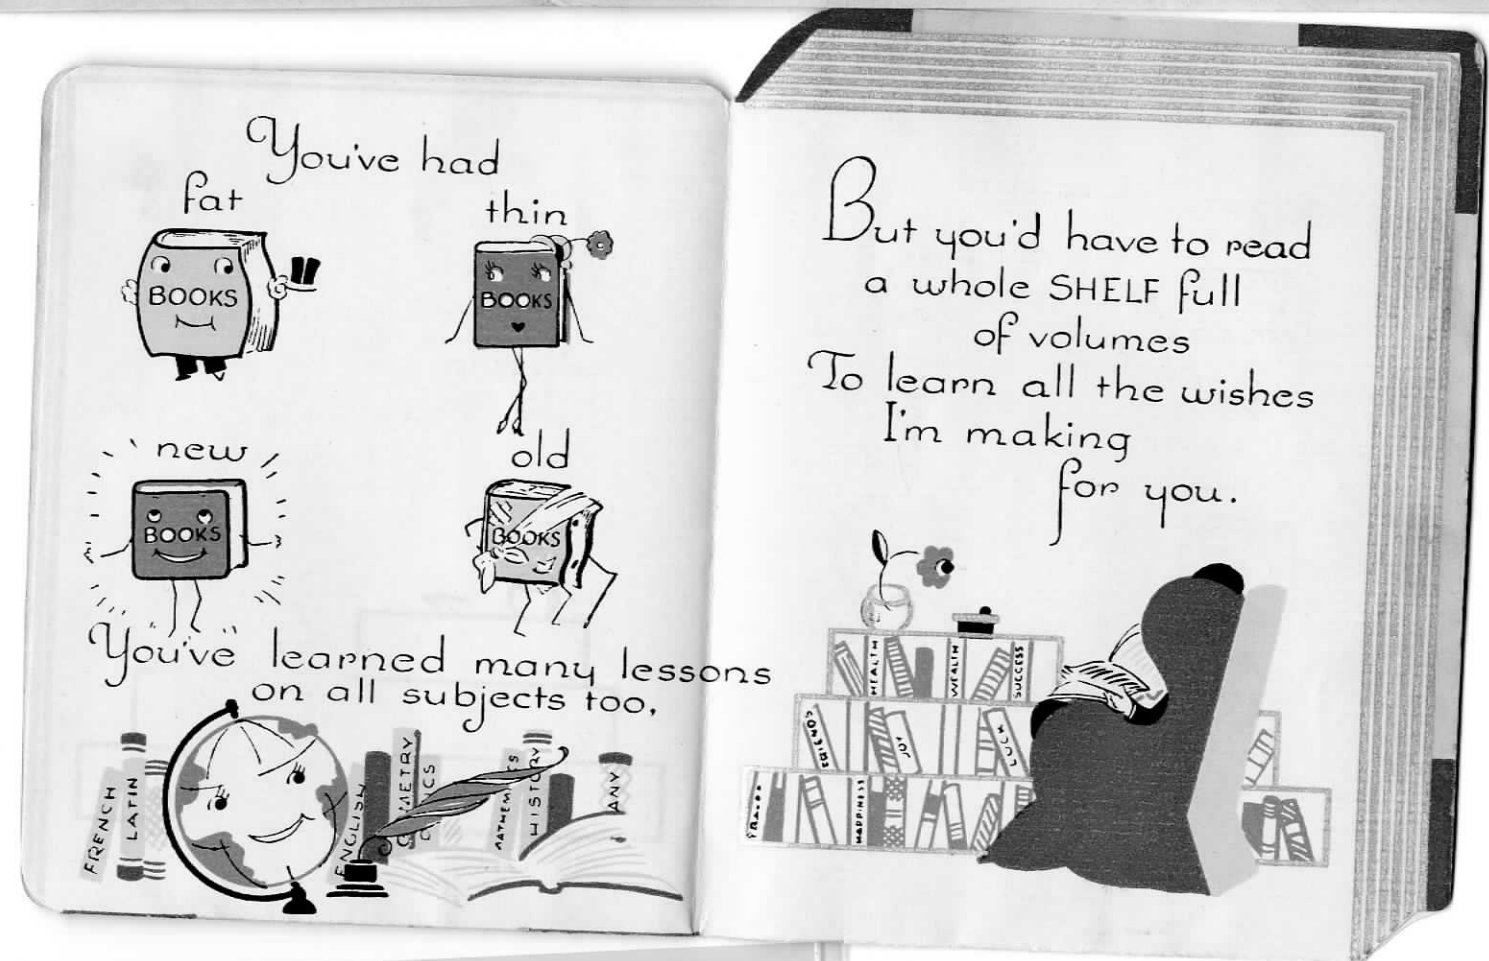 You've had
fat
BOOKS
thin
BOOKS
new
BOOKS
old
BOOKS
You've learned many lessons
on all subjects too,
FRENCH
LATIN
ENGLISH
HISTORY
But you'd have to read
a whole SHELF full
of volumes
To learn all the wishes
I'm making
for you.
HEALTH
WEALTH
SUCCESS
JOY
LUCK
HAPPINESS